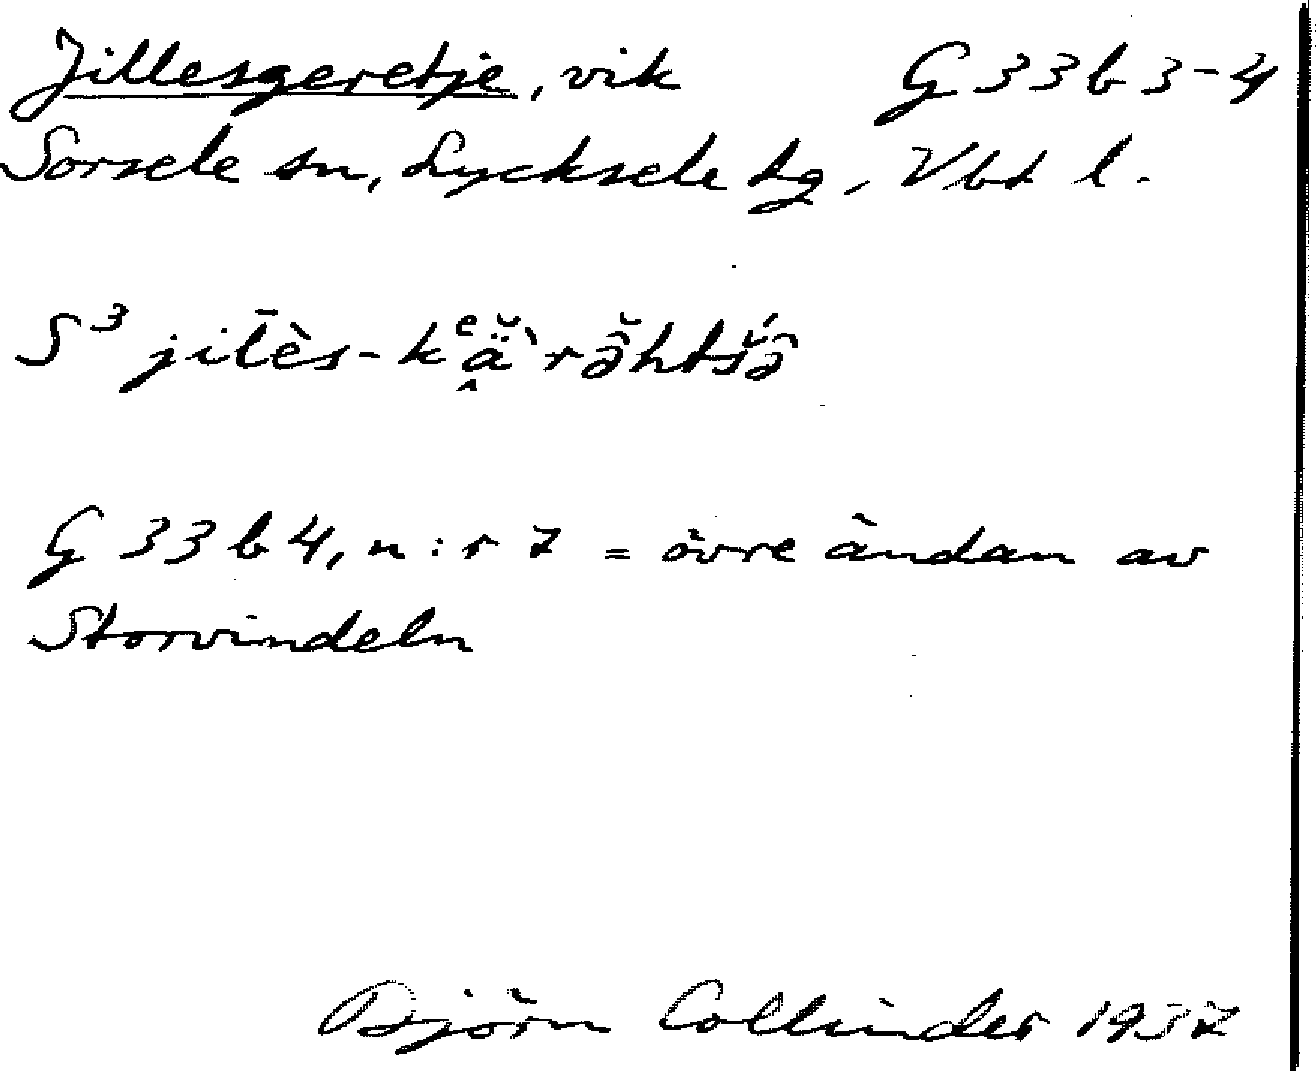 Jillesgeretje, vik G 33 b 3-4
Sorsele sn, Lycksele tg, Vbt l.
S³ jil̄ès-kᵉä̭̆̀rə̆htšə̂́
G 33 b 4, n:r 7 = övre ändan av
Storvindeln
Björn Collinder 1937